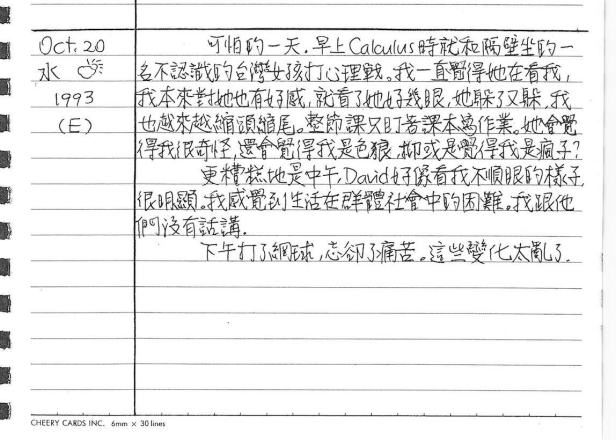 Oct. 20
水
1993
(E)
可怕的一天. 早上 Calculus 時就和隔壁坐的一
名不認識的台灣女孩打心理戰。我一直覺得她在看我,
我本來對她也有好感, 就看了她好幾眼, 她躲了又躲. 我
也越來越縮頭縮尾。整節課只盯著課本寫作業。她會覺
得我很奇怪, 還會覺得我是色狼. 抑或是覺得我是瘋子?
更糟糕地是中午, David 好像看我不順眼的樣子,
很明顯。我感覺到生活在群體社會中的困難。我跟他
們沒有話講.
下午打了網球, 忘卻了痛苦。這些變化太亂了.
CHEERY CARDS INC. 6mm × 30 lines